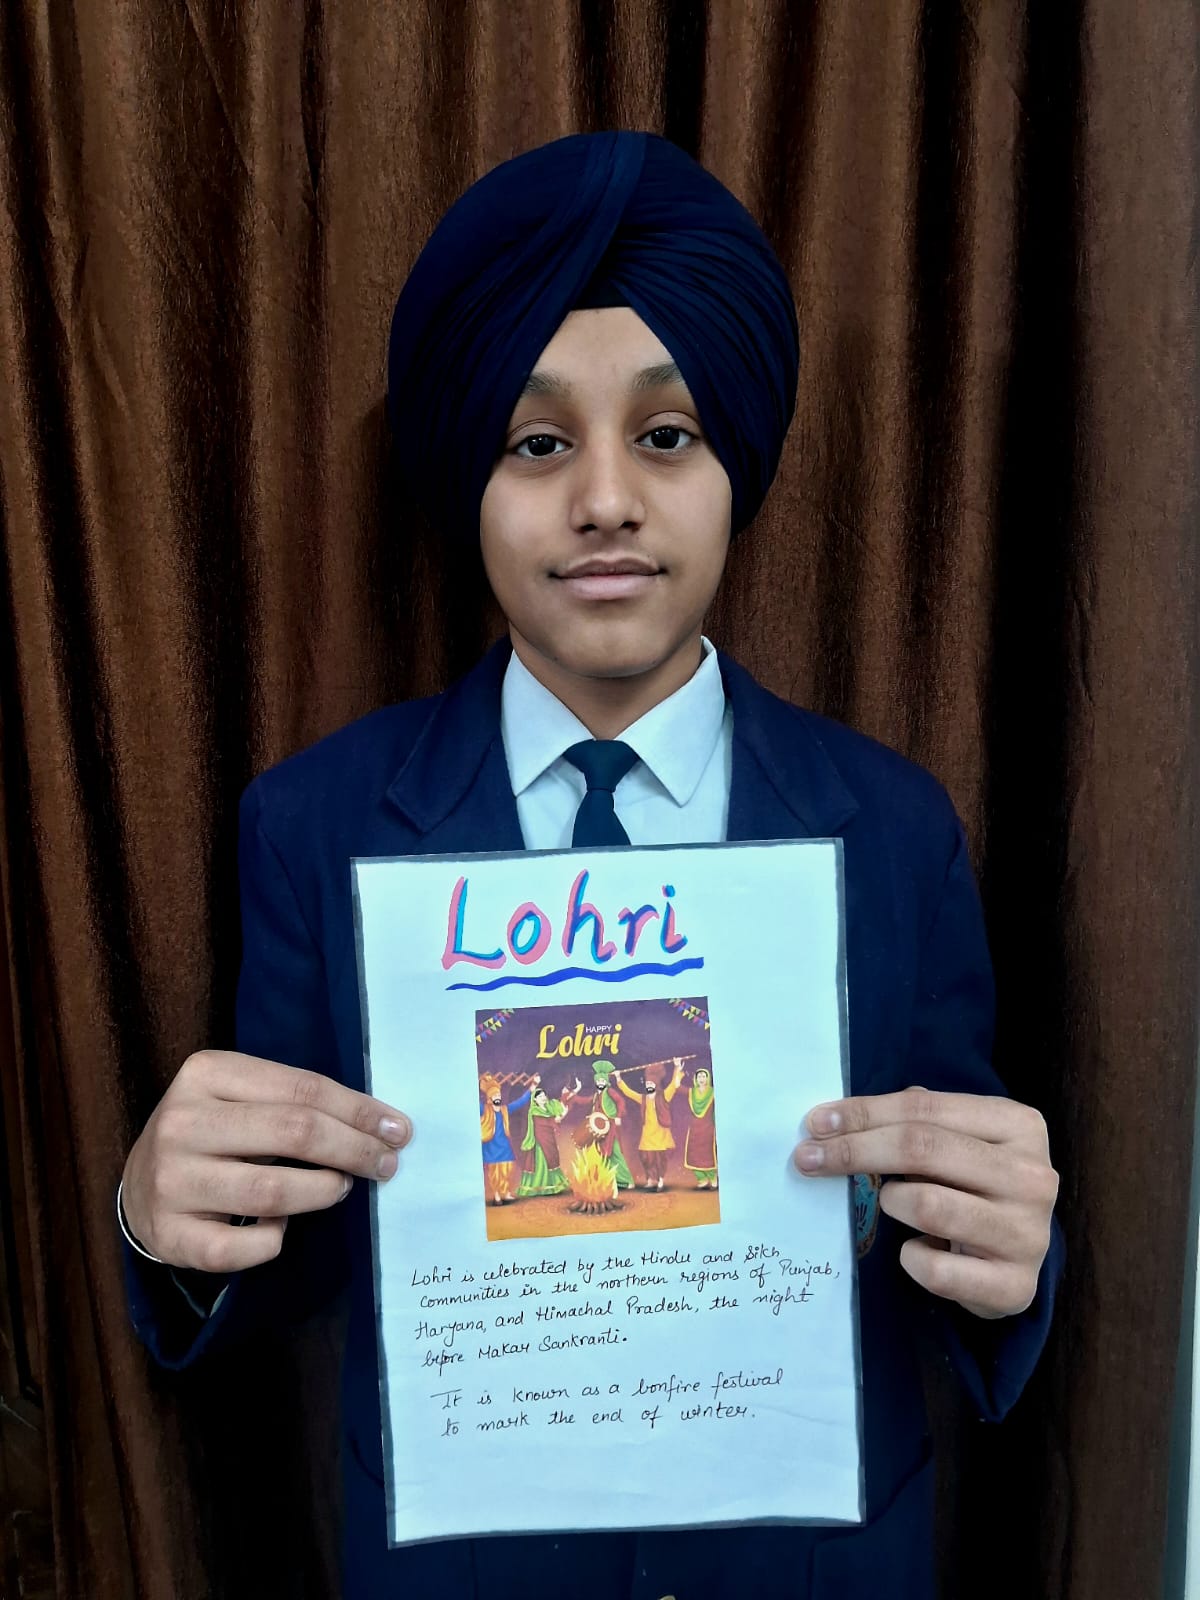 Lohri
HAPPY
Lohri
Lohri is celebrated by the Hindu and Sikh
communities in the northern regions of Punjab,
Haryana, and Himachal Pradesh, the night
before Makar Sankranti.
It is known as a bonfire festival
to mark the end of winter.